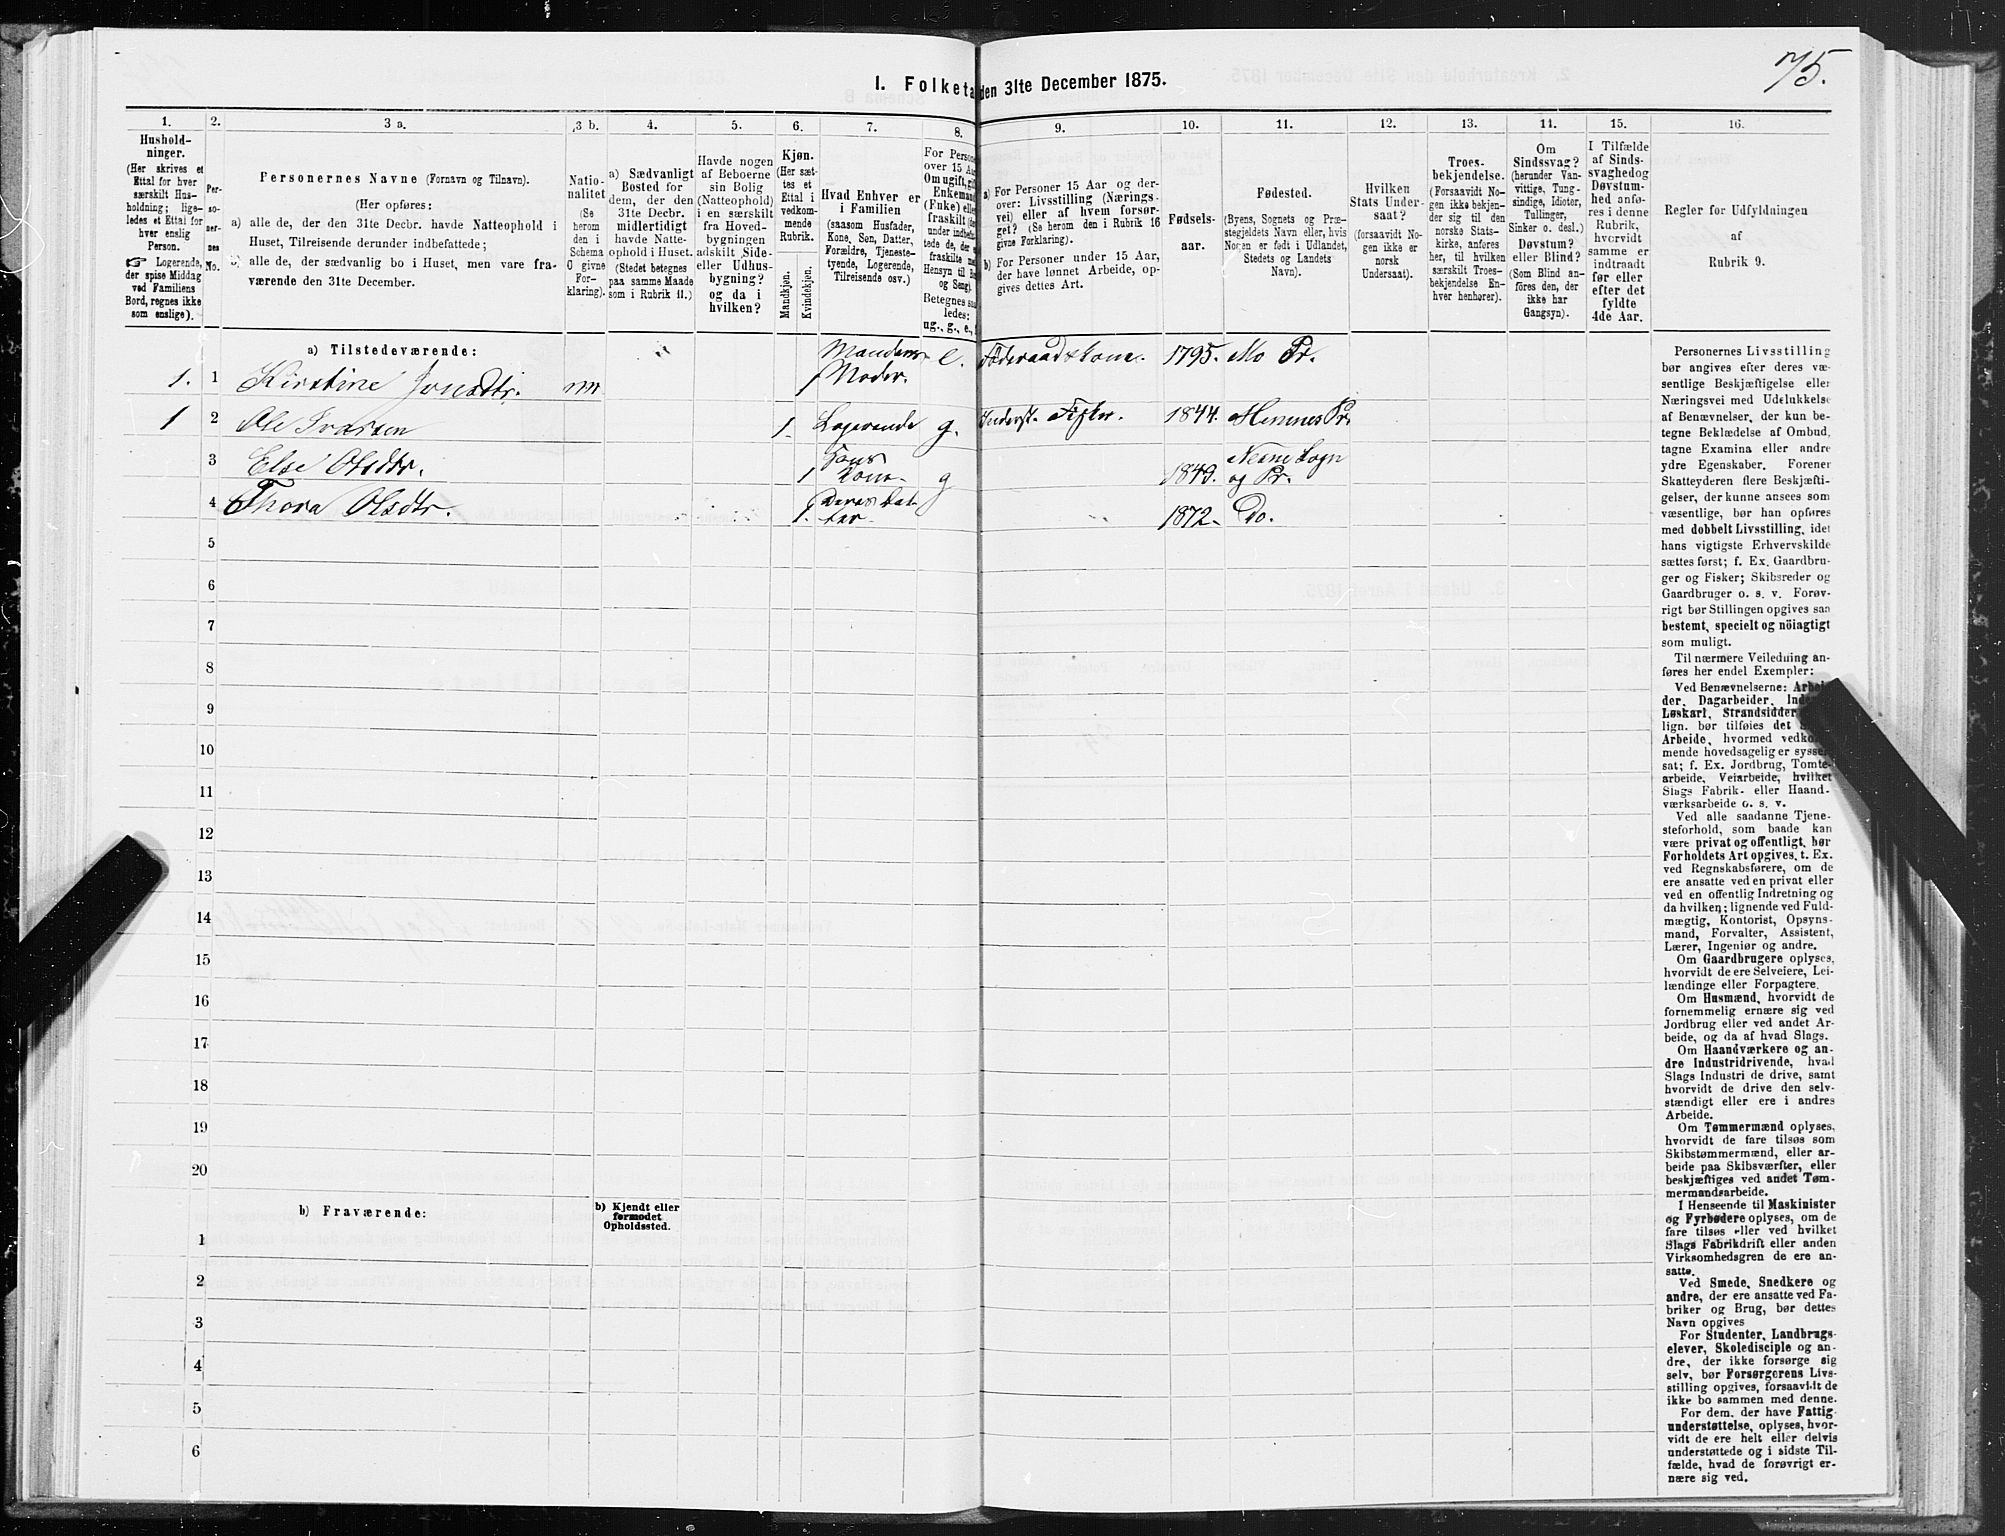 75.
I. Folketa den 31te December 1875.
1.
2.
3 a.
3 b.
4.
5.
6.
7.
8.
9.
10.
11.
12.
13.
14.
15.
16.
Hushold-
ninger.
(Her skrives et
Ettal for hver
særskilt Hus-
holdning; lige-
ledes et Ettal for
hver enslig
Person.
☞ Logerende,
der spise Middag
ved Familiens
Bord, regnes ikke
som enslige).
Per-
so-
ner-
nes
No.
Personernes Navne (Fornavn og Tilnavn).
(Her opføres:
a) alle de, der den 31te Decbr. havde Natteophold i
Huset, Tilreisende derunder indbefattede;
b) alle de, der sædvanlig bo i Huset, men vare fra-
værende den 31te December.
Natio-
nalitet
(Se
herom
den i
Schema
C givne
For-
klaring).
a) Sædvanligt
Bosted for
dem, der den
31te Decbr.
midlertidigt
havde Natte-
ophold i Huset.
(Stedet betegnes
paa samme Maade
som i Rubrik 11.)
Havde nogen
af Beboerne
sin Bolig
(Natteophold)
i en særskilt
fra Hoved-
bygningen
adskilt Side-
eller Udhus-
bygning?
og da i
hvilken?
Kjøn.
(Her sæt-
tes et
Ettal i
vedkom-
mende
Rubrik.
Mandkjøn.
Kvindekjøn.
Hvad Enhver er
i Familien
(saasom Husfader,
Kone, Søn, Datter,
Forældre, Tjeneste-
tyende, Logerende,
Tilreisende osv.)
For Person
over 15 Aa
Om ugift, gif
Enkemand
(Enke) elle
fraskilt
Hensyn til Bo
og Seng).
Betegnes saa
ledes:
ug., g., e.,
a) For Personer 15 Aar og der-
over: Livsstilling (Nærings-
vei) eller af hvem forsør-
get? (Se herom den i Rubrik 16
givne Forklaring).
b) For Personer under 15 Aar,
der have lønnet Arbeide, op-
gives dettes Art.
Fødsels-
aar.
Fødested.
(Byens, Sognets og Præ-
stegjeldets Navn eller, hvis
Nogen er født i Udlandet,
Stedets og Landets
Navn).
Hvilken
Stats Under-
saat?
(forsaavidt No-
gen ikke er
norsk
Undersaat).
Troes-
bekjendelse.
(Forsaavidt No-
gen ikke bekjen-
der sig til den
norske Stats-
kirke, anføres
her, til hvilken
særskilt Troes-
bekjendelse En-
hver henhører).
Om
Sindssvag?
(herunder Van-
vittige, Tung-
sindige, Idioter,
Tullinger,
Sinker o. desl.)
Døvstum?
eller Blind?
(Som Blind an-
føres den, der
ikke har
Gangsyn).
I Tilfælde
af Sinds-
svaghed og
Døvstum-
hed anfø-
res i denne
Rubrik,
hvorvidt
samme er
indtraadt
før eller
efter det
fyldte
4de Aar.
Regler for Udfyldningen
af
Rubrik 9.
a) Tilstedeværende:
1. 1 Kirstine Jonsdtr. nn 1 Mandens Moder. e. Føderaadskone. 1795. Mo Pr.
1 2 Ole Ivarsen 1. Logerende g. Inderst. Fisker. 1844. Hemnes Pr.
3 Else Olsdtr. 1 Hans Kone. g 1849. Nesne Sogn og Pr.
4 Thora Olsdtr. 1. Deres Datter 1872. Do.
5
6
7
8
9
10
11
12
13
14
15
16
17
18
19
20
b) Fraværende:
b) Kjendt eller
formodet
Opholdssted.
1
2
3
4
5
6
Personernes Livsstilling
bør angives efter deres væ-
sentlige Beskjæftigelse eller
Næringsvei med Udelukkelse
af Benævnelser, der kun be-
tegne Beklædelse af Ombud,
tagne Examina eller andre
ydre Egenskaber. Forener
Skatteyderen flere Beskjæfti-
gelser, der kunne ansees som
væsentlige, bør han opføres
med dobbelt Livsstilling, idet
hans vigtigste Erhvervskilde
sættes først; f. Ex. Gaardbru-
ger og Fisker; Skibsreder og
Gaardbruger o. s. v. Forøv-
rigt bør Stillingen opgives saa
bestemt, specielt og nöiagtigt
som muligt.
Til nærmere Veiledning an-
føres her endel Exempler:
Ved Benævnelserne: Arbei-
der, Dagarbeider, Inder
Løskarl, Strandsidder
lign. bør tilføies det
Arbeide, hvormed vedkom-
mende hovedsagelig er syssel-
sat; f. Ex. Jordbrug, Tomte-
arbeide, Veiarbeide, hvilket
Slags Fabrik- eller Haand-
værksarbeide o. s. v.
Ved alle saadanne Tjene-
steforhold, som baade kan
være privat og offentligt, bør
Forholdets Art opgives, t. Ex.
ved Regnskabsførere, om de
ere ansatte ved en privat eller
ved en offentlig Indretning og
da hvilken; lignende ved Fuld-
mægtig, Kontorist, Opsyns-
mand, Forvalter, Assistent,
Lærer, Ingeniør og andre.
Om Gaardbrugere oplyses,
hvorvidt de ere Selveiere, Lei-
lændinge eller Forpagtere.
Om Husmænd, hvorvidt de
fornemmelig ernære sig ved
Jordbrug eller ved andet Ar-
beide, og da af hvad Slags.
Om Haandværkere og an-
dre Industridrivende, hvad
Slags Industri de drive, samt
hvorvidt de drive den selv-
stændigt eller ere i andres
Arbeide.
Om Tømmermænd oplyses,
hvorvidt de fare tilsøs som
Skibstømmermænd, eller ar-
beide paa Skibsværfter, eller
beskjæftiges ved andet Tøm-
mermandsarbeide.
I Henseende til Maskinister
og Fyrbødere oplyses, om de
fare tilsøs eller ved hvilket
Slags Fabrikdrift eller anden
Virksomhedsgren de ere an-
satte.
Ved Smede, Snedkere og
andre, der ere ansatte ved Fa-
briker og Brug, bør dettes
Navn opgives
For Studenter, Landbrugs-
elever, Skoledisciple og an-
dre, der ikke forsørge sig
selv, bør Forsørgerens Livs-
stilling opgives, forsaavidt de
ikke bo sammen med denne.
For dem, der have Fattig-
understøttelse, oplyses, hvor-
vidt de ere helt eller delvis
understøttede og i sidste Til-
fælde, hvad de forøvrigt er-
nære sig ved.